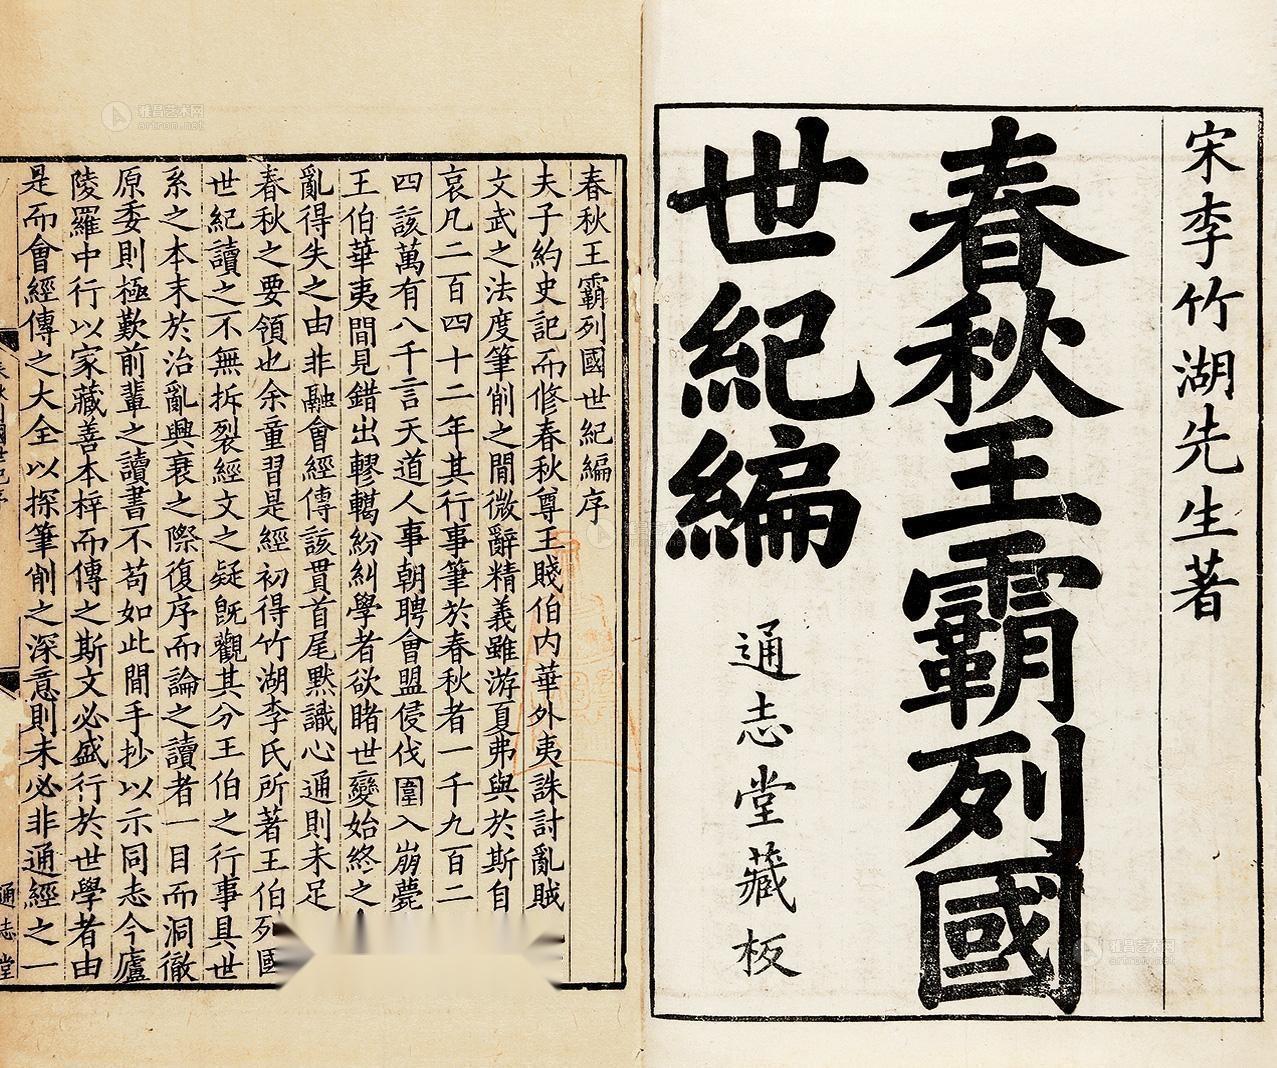 宋李竹湖先生著
春秋王霸列國
世紀編
通志堂藏板
春秋王霸列國世紀編序
夫子約史記而修春秋尊王賤伯内華外夷誅討亂賊
文武之法度筆削之閒微辭精義雖游夏弗與於斯自
哀凡二百四十二年其行事筆於春秋者一千九百二
四該萬有八千言天道人事朝聘會盟侵伐圍入崩薨
王伯華夷閒見錯出轇轕紛糾學者欲睹世變始終之
亂得失之由非融會經傳該貫首尾黙識心通則未足
春秋之要領也余童習是經初得竹湖李氏所著王伯列國
世紀讀之不無拆裂經文之疑旣觀其分王伯之行事具世
系之本末於治亂興衰之際復序而論之讀者一目而洞徹
原委則極歎前輩之讀書不苟如此閒手抄以示同志今廬
陵羅中行以家藏善本梓而傳之斯文必盛行於世學者由
是而會經傳之大全以探筆削之深意則未必非通經之一
通志堂
雅昌艺术网
artron.net
雅昌艺术网
artron.net